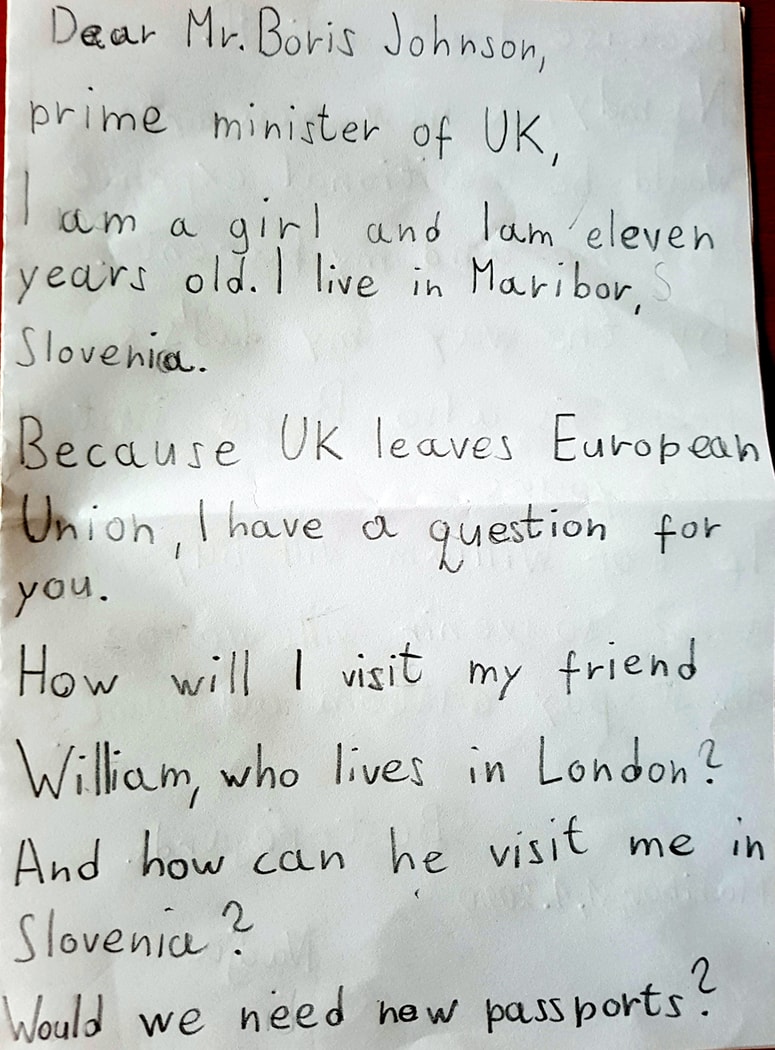 Dear Mr. Boris Johnson,
prime minister of UK,
I am a girl and I am eleven
years old. I live in Maribor, S
Slovenia.
Because UK leaves European
Union, I have a question for
you.
How will I visit my friend
William, who lives in London?
And how can he visit me in
Slovenia?
Would we need new passports?